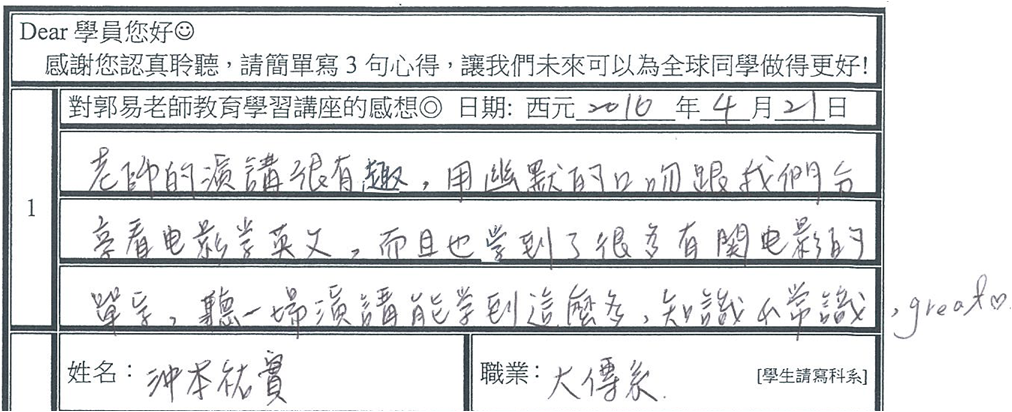 Dear 學員您好☺
感謝您認真聆聽，請簡單寫 3 句心得，讓我們未來可以為全球同學做得更好!
對郭易老師教育學習講座的感想◎ 日期: 西元 2016 年 4 月 21 日
1
老師的演講很有趣，用幽默的口吻跟我們分
享看电影学英文，而且也學到了很多有関电影的
單字，聽一場演講能学到這麼多，知識水常識，great♡.
姓名： 沖本祐實 職業： 大傳系 [學生請寫科系]